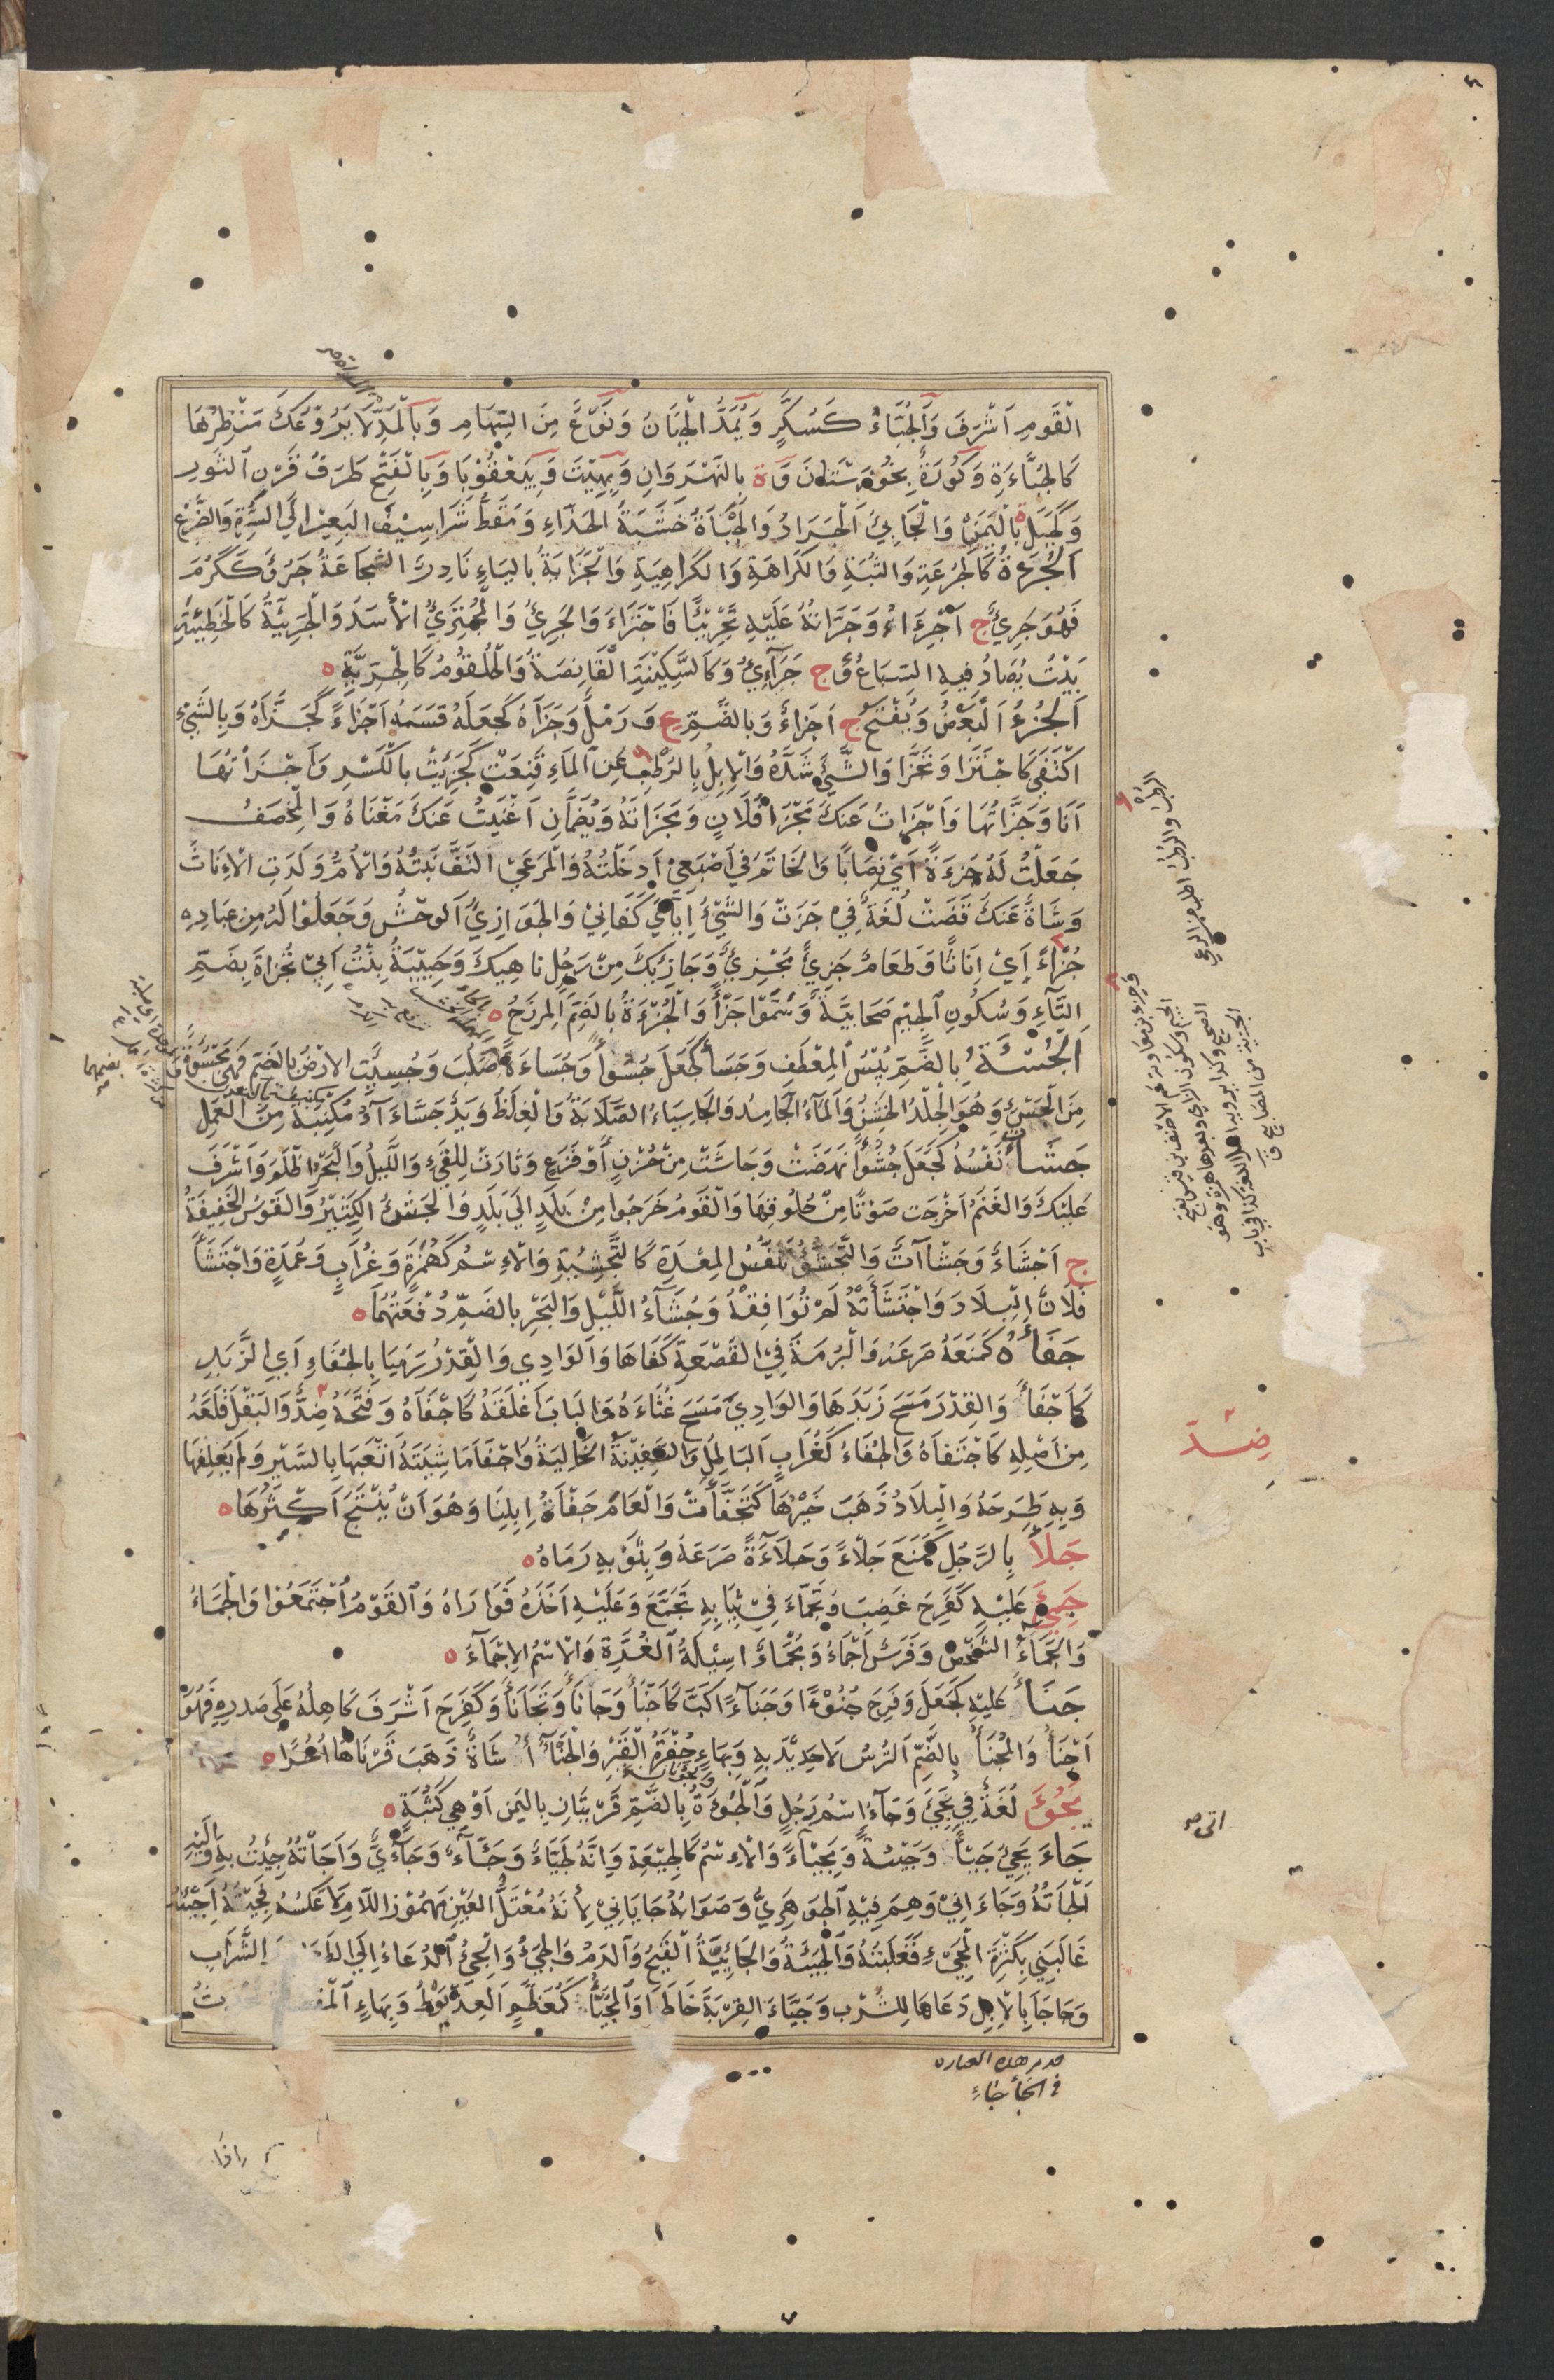 القَومِ اَشْرَفَ وَالجُبَّاءُ كَسُكَّرٍ وَيُمَدُّ الجَبَانُ وَنَوْعٌ مِنَ السِّهَامِ وَبِالْمَدِّ لَا يَرُوْعُكَ مَنْظَرُهَا
كَالجَبَّاءَةِ وَكُورَةٌ بِخُوْزِسْتَانَ وَة بِالنَهْرَوَانِ وَبِهِيْتَ وَبِبَعْقُوْبَا وَبِالْفَتْحِ طَرَفُ قَرْنِ الثَورِ
وَكَجَبَلٍ ة بِاليَمَنِ وَالْجَابِئُ الْجَرَادُ وَالْجَبْأَةُ خَشَبَةُ الحَذَّاءِ وَمَقَطُّ شَرَاسِيْفِ البَعِيْرِ اِلَى السُّرَّةِ وَالضَّرْعِ
الجُرْءَةُ كَالجُرْعَةِ وَالثُبَةِ وَالكَرَاهَةِ وَالكَرَاهِيَةِ وَالْجَرَايَةُ بِاليَاءِ نَادِرٌ الشَّجَاعَةُ جَرُؤَ كَكَرُمَ
فَهُوَ جَرِيْءٌ ج اَجْرِءَاءُ وَجَرَّأْتُهُ عَلَيْهِ تَجْرِيْئًا فَاجْتَرَاَ وَالجَرِيْءُ وَالْمُجْتَرِئُ الْاَسَدُ وَالْجَرِيْئَةُ كَالْخَطِيْئَةِ
بَيْتٌ يُصَادُ فِيهِ السِّبَاعُ ج جَرَائِيْ وَكَالسِّكِّيْنَةِ القَانِصَةُ وَالْحُلْقُومُ كَالْجِرِّيَّةِ ه
اَلجُزْءُ اَلْبَعْضُ وَيُفْتَحُ ج اَجْزَاءٌ وَبِالضَّمِّ ع وَرَمْلٌ وَجَزَأَهُ كَجَعَلَهُ قَسَمَهُ اَجْزَاءً كَجَزَّأَهُ وَبِالشَّيْءِ
اكْتَفَى كَاجْتَزَا وَتَجَزَّا وَالشَّيْءَ شَدَّهُ وَالْاِبِلُ بِالرُّطْبِ عَنِ المَاءِ قَنِعَتْ كَجَزِئَتْ بِالْكَسْرِ وَاَجْزَأْتُهَا
اَنَا وَجَزَّاْتُهَا وَاَجْزَاْتُ عَنكَ مَجْزَأَ فُلَانٍ وَمَجْزَاتَهُ وَيُضَمَّانِ اَغْنَيْتُ عَنكَ مَغْنَاهُ وَالْمِخْصَفَ
جَعَلْتُ لَهُ جُزْءَةً اَيْ نِصَابًا وَالخَاتَمَ فِي اَصْبَعِيْ اَدْخَلْتُهُ وَالْمَرْعَى الْتَفَّ نَبْتُهُ وَالْاُمُّ وَلَدَتِ الْاِنَاثَ
وَشَاةٌ عَنكَ قَضَتْ لُغَةٌ فِيْ جَزَتْ وَالشَّيْءُ اِيَّايَ كَفَانِيْ وَالجَوَازِئُ الوَحْشُ وَجَعَلُوْا لَهُ مِنْ عِبَادِهِ
جُزْءً اَيْ اِنَاثًا وَطَعَامٌ جَزِيْءٌ مُجْزِئٌ وَجَازِئُكَ مِنْ رَجُلٍ نَاهِيكَ وَحَبِيْبَةُ بِنْتُ اَبِيْ تُجْزَاةَ بِضَمِّ
التَّاءِ وَسُكُونِ الجِيْمِ صَحَابِيَّةٌ وَسَمَّوْا جَزْأً وَالْجُزْءَةُ بِالضَمِّ المِرْزَحُ ه
الجُسْئَةُ بِالضَّمِّ يُبْسُ المَعْطِفِ وَجَسَأَ كَجَعَلَ جُسُوْأً وَجُسَاءَةً صَلُبَ وَجُسِئَتِ الاَرْضُ بِالضَمِّ فَهِيَ مَجْسُوَّةٌ
مِنَ الْجَسْءِ وَهُوَ الجِلْدُ الخَشِنُ وَالمَاءُ الجَامِدُ وَالجَاسِيَاءُ الصَّلَابَةُ وَالغِلَظُ وَيَدٌ جَسْاءَ مُكْنِبَةٌ مِنَ العَمَلِ
جَشَأَتْ نَفْسُهُ كَجَعَلَ جُشُوْأً نَهَضَتْ وَجَاشَتْ مِنْ حُزْنٍ اَوْ فَزَعٍ وَثَارَتْ لِلْقَيْءِ وَاللَّيْلُ وَالْبَحْرُ اَظْلَمَ وَاَشْرَفَ
عَلَيْكَ وَالغَنَمُ اَخْرَجَتْ صَوْتًا مِنْ حُلُوقِهَا وَالقَومُ خَرَجُوا مِنْ بَلَدٍ اِلَى بَلَدٍ وَالجَشْءُ الكَثِيْرُ وَالقَوْسُ الخَفِيفَةُ
ج اَجْشَاءٌ وَجَشَآاتٌ وَالتَّجَشُّؤُ تَنَفُّسُ المِعْدَةِ كَالتَّجْشِئَةِ وَالْاِسْمُ كَهُمَزَةٍ وَغُرَابٍ وَعُمْدَةٍ وَاجْتَشَأَ
فُلَانٌ البِلَادَ وَاجْتَشَأَتْهُ لَمْ تُوَافِقْهُ وَجُشَاءُ اللَّيْلِ وَالبَحْرِ بِالضَمِّ دُفْعَتُهُمَا ه
جَفَأَهُ كَمَنَعَهُ صَرَعَهُ وَالْبُرْمَةَ فِي القَصْعَةِ كَفَاهَا وَالوَادِي وَالْقِدْرُ رَمَيَا بِالجُفَاءِ اَيِ الزَّبَدِ
كَاَجْفَأَ وَالقِدْرَ مَسَحَ زَبَدَهَا وَالوَادِيَ مَسَحَ غُثَاءَهُ وَالبَابَ اَغْلَقَهُ كَاَجْفَاَهُ وَفَتَحَهُ ضِدٌّ وَالبَقْلَ قَلَعَهُ
مِن اَصْلِهِ كَاجْتَفَاهُ وَالجُفَاءُ كَغُرَابٍ البَاطِلُ وَالسَّفِيْنَةُ الخَالِيَةُ وَاَجْفَا مَاشِيَتَهُ اَتْعَبَهَا بِالسَّيْرِ وَلَمْ يَعْلِفْهَا
وَبِهِ طَرَحَهُ وَالبِلَادُ ذَهَبَ خَيْرُهَا كَتَجَفَّأَتْ وَالْعَامَ جَفْأَةُ اِبِلِنَا وَهُوَ اَنْ يُنْتَجَ اَكْثَرُهَا ه
جَلَأَ بِالرَّجُلِ كَمَنَعَ جَلْاءً وَجَلَاءَةً صَرَعَهُ وَبِثَوْبِهِ رَمَاهُ ه
جَمِئَ عَلَيْهِ كَفَرِحَ غَضِبَ وَتَجَمَّاَ فِيْ ثِيَابِهِ تَجَمَّعَ وَعَلَيْهِ اَخَذَهُ فَوَارَاهُ وَالقَوْمُ اجْتَمَعُوْا وَالجَمَاءُ
وَالجَمَاءُ الشَّخْصُ وَفَرَسٌ اَجْمَاءُ وَمُجْمَاءٌ اَسِيْلَةُ الغُرَّةِ وَالْاِسْمُ الاِجْمَاءُ ه
جَنَأَ عَلَيْهِ كَجَعَلَ وَفَرِحَ جُنُوْءًا وَجَنَاءً اَكَبَّ كَاَجْنَأَ وَجَانَأَ وَتَجَانَأَ وَكَفَرِحَ اَشْرَفَ كَاهِلُهُ عَلَى صَدْرِهِ فَهُوَ
اَجْنَأُ وَالْمُجْنَأُ بِالضَّمِّ التُرْسُ لَا حَدِيْدَ بِهِ وَبِهَاءٍ حُفْرَةُ القَبْرِ وَالْجَنَأءُ شَاةٌ ذَهَبَ قَرْنَاهَا اُخُرًا ه
يَجُوْءُ لُغَةٌ فِي يَجِيْئُ وَجَاءٌ اسْمُ رَجُلٍ وَالجُوءَةُ بِالضَّمِّ قَرْيَتَانِ بِاليَمَنِ اَوْ هِي كَثُبَةٍ ه
جَاءَ يَجِيْئُ جَيْئًا وَجَيْئَةً وَمَجِيْئًا وَالْاِسْمُ كَالجِيْعَةِ وَاِنَّهُ لَجَيَّاءٌ وَجَئَّاءٌ وَجَائِيٌّ وَاَجَاْتُهُ جِئْتُ بِهِ وَاِلَيْهِ
اَلْجَأْتُهُ وَجَاءَانِيْ وَهِمَ فِيْهِ الجَوهَرِيُّ وَصَوَابُهُ جَايَانِيْ لِاَنَّهُ مُعْتَلُّ العَيْنِ مَهْمُوْزُ اللَّامِ لَا عَكْسُهُ فَجِئْتُهُ اَجِيْئُهُ
غَالَبَنِيْ بِكَثْرَةِ المَجِيْءِ فَغَلَبْتُهُ وَالجَيْئَةُ وَالجَائِيَةُ القَيْحُ وَالدَمُ وَالجَيْءُ وَالْجِيْءُ الدُعَاءُ اِلَى الط الشَّرَابِ
وَجَاجَأَ بِالْاِبِلِ دَعَاهَا لِلشُّرْبِ وَجَيَّاَ القِرْبَةَ خَاطَهَا وَالمُجَيَّأُ كَمُعَظَّمٍ العِذْيَوْطُ وَبِهَاءٍ
الرُطْبُ والرُطُبُ
وجزء بن معاوية عم الاحنف بن قيس بفتح
الجيم وسكون الزاي وبعدها همزة وهو
الصحيح وكذا يرويه اهل اللغة
ضد
هذه العباره